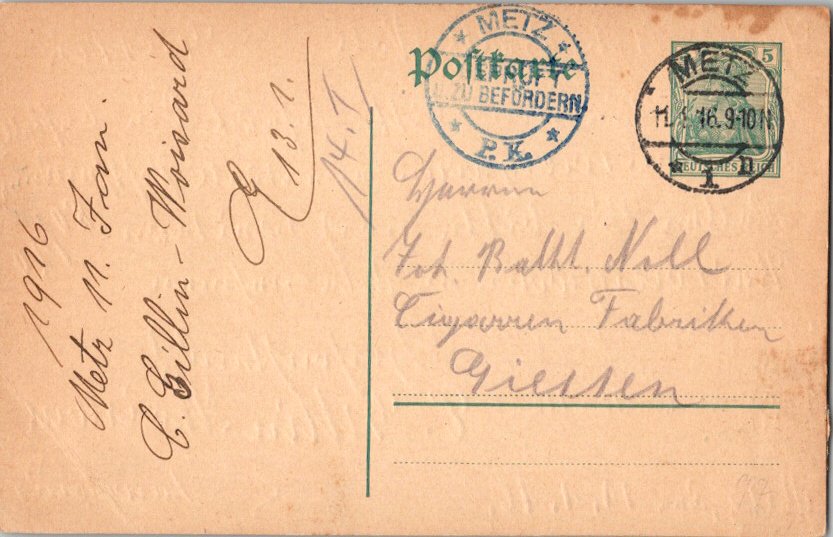 1916
Metz 11. Jan.
C. Cillin-Woirard
E 13.1.
14.1
Postkarte
METZ
ZU BEFÖRDERN
P. K.
5
METZ
11. 1. 16. 9-10 N
* 1 n
DEUTSCHES REICH
Herrn
Joh. Balth. Noll
Cigarren Fabriken
Giessen